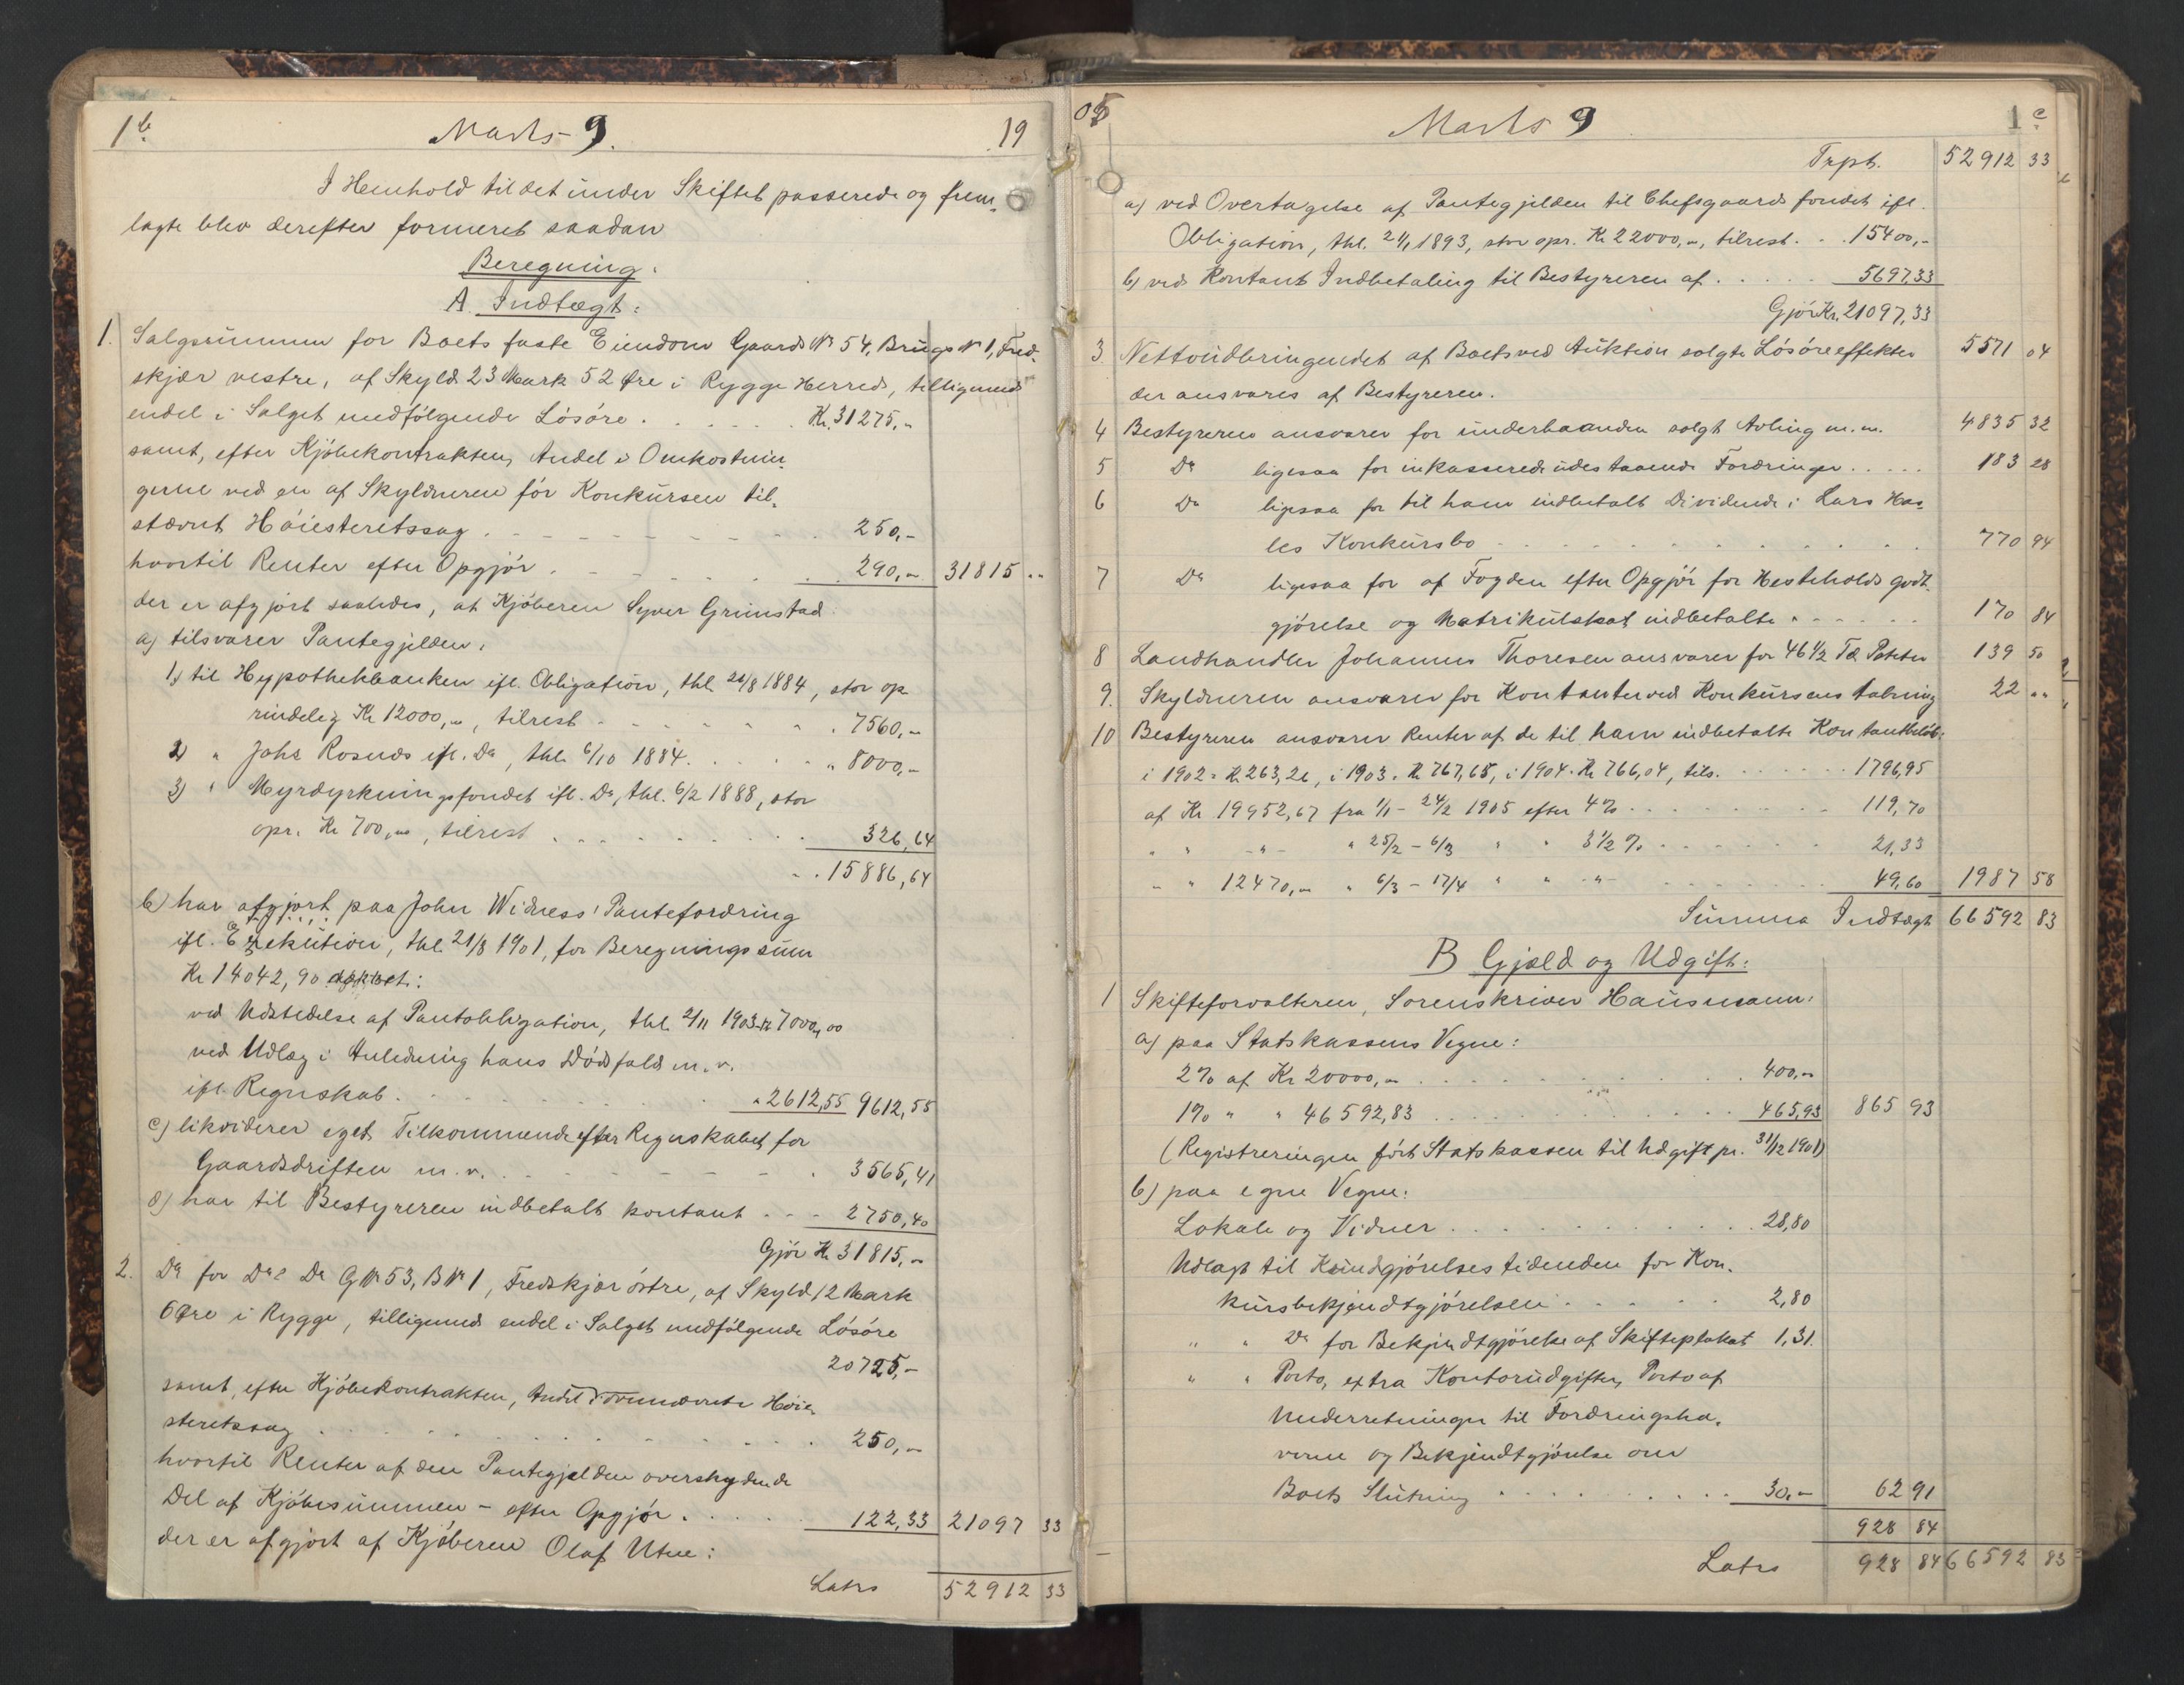 1 b. Marts 9. 19
I Henhold til det under Skiftet passerede og frem-
lagte blev derefter formeret saadan
Beregning:
A. Indtægt:
1. Salgssummen for Boets faste Eiendom Gaards No 54, Brugs No 1, Fred-
skjær vestre, af Skyld 23 Mark 52 Øre i Rygge Herred, tilligemed
endel i Salget medfølgende Løsøre . . . . . . Kr. 31275,-
samt, efter Kjøbekontrakten, Andel i Omkostnin-
gerne ved en af Skyldneren før Konkursen til-
stævnt Høiesteretssag . . . . . . . . 250,-
hvortil Renter efter Opgjør . . . . . . . 290,- 31815 ..
der er afgjort saaledes, at Kjøberen Syver Grimstad
a) tilsvarer Pantegjelden:
1) til Hypothekbanken ifl. Obligation, thl. 26/8 1884, stor op-
rindelig Kr 12000,-, tilrest . . . . . . . 7560,-
2) " Johs Rosnæs ifl. Do, thl. 6/10 1884 . . . . . " 8000,-
3) " Myrdyrkningsfondet ifl. Do, thl. 6/2 1888, stor
opr. Kr 700,00, tilrest . . . . . . . . 326,64
. . 15886,64
b) har afgjort paa John Widness' Pantefordring
ifl. Exekution, thl. 21/8 1901, for Beregningssum
Kr 14042,90
ved Udstedelse af Pantobligation, thl. 2/11 1903 Kr 7000,00
ved Udlæg i Anledning hans Dødsfald m.v.
ifl. Regnskab . . . . . . . . " 2612,55 9612,55
c) likviderer eget Tilkommende efter Regnskabet for
Gaardsdriften m.v. . . . . . . . . 3565,41
d) har til Bestyreren indbetalt kontant . . . 2750,40
Gjør Kr 31815,-
2. Do for Do Do G No 53, B No 1, Fredskjær østre, af Skyld 12 Mark
6 Øre i Rygge, tilligemed endel i Salget medfølgende Løsøre
20725,-
samt, efter Kjøbekontrakten, Andel i fornævnte Høie-
steretssag . . . . . . . . . . . . 250,-
hvortil Renter af den Pantegjelden overskydende
Del af Kjøbesummen - efter Opgjør . . . . . 122,33 21097 33
der er afgjort af Kjøberen Olaf Utne:
Latrs 52912 33
05 Marts 9 1 c.
Trpt. 52912 33
a) ved Overtagelse af Pantegjelden til Chefsgaards fondet ifl.
Obligation, thl. 21/1 1893, stor opr. Kr 22000,-, tilrest . . . 15400,-
b) ved Kontant Indbetaling til Bestyreren af . . . . . 5697,33
Gjør Kr. 21097,33
3 Nettoudbringendet af Boets ved Auktion solgte Løsøreeffekter 5571 04
der ansvares af Bestyreren.
4 Bestyreren ansvarer for underhaanden solgt Avling m.m. 4835 32
5 Do ligesaa for inkasserede udestaaende Fordringer . . . . 183 28
6 Do ligesaa for til ham indbetalt Dividende i Lars Has-
les Konkursbo . . . . . . . . . . . 770 94
7 Do ligesaa for af Fogden efter Opgjør for Hesteholds godt-
gjørelse og Matrikulskat indbetalte . . . . . . 170 84
8 Landhandler Johannes Thoresen ansvarer for 46 1/2 Td. Poteter 139 50
9. Skyldneren ansvarer for Kontanter ved Konkursens Aabning 22 ..
10 Bestyreren ansvarer Renter af de til ham indbetalte Kontantbeløb:
i 1902 = Kr 263,26, i 1903 = Kr 767,65, i 1904 = Kr 766,04, tils. . . . . . . . 1796,95
af Kr 19952,67 fra 1/1 - 24/2 1905 efter 4% . . . . . . . . 119,70
" " - " - " 25/2 - 6/3 " " 3 1/2 % . . . . . . 21,33
- " 12470,00 " 6/3 - 17/4 " " - " - . . . . . . 49,60 1987 58
Summa Indtægt 66592 83
B Gjæld og Udgift:
1 Skifteforvalteren, Sorenskriver Hausmann:
a) paa Statskassens Vegne:
2% af Kr 20000,- . . . . . . . . . . . 400,-
1% " " 46592,83 . . . . . . . . . . 465,93 865 93
(Registreringen ført Statskassen til Udgift pr. 31/12 1901)
b) paa egne Vegne:
Lokale og Vidner . . . . . . . . . . . . 28,80
Udlagt til Kundgjørelsestidenden for Kon-
kursbekjendtgjørelsen . . . . . . 2,80
" " Do for Bekjendtgjørelse af Skifteplakat 1,31.
" " Porto, extra Kontorudgifter, Porto af
Underretninger til Fordringsha-
verne og Bekjendtgjørelse om
Boets Slutning . . . . . . . . . 30,- 62 91
928 84
Latrs 928 84 66592 83